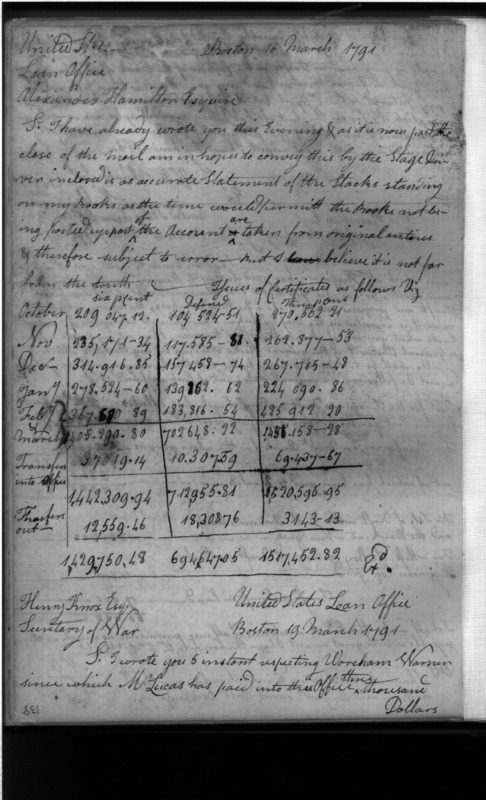 United States Boston 16 March 1791
Loan Office
Alexander Hamilton Esquire
S. I have already wrote you this Evening & as it is now past the
close of the mail am in hopes to convey this by the Stage dri-
ver inclosed is as accurate Statement of the Stocks standing
on my Books as the time would permitt the Books not be-
ing posted up part of the Account are taken from original entries
& therefore subject to error but I believe it is not far
from the truth Issues of Certificates as follows Viz
six pCent Defered Three pCents
October 209 047.12. 104 524-51 270,562 21
Nov 235,171-34 117.585-81. 262.877-53
Decr 314.916.85 157458-74 267.715-48
Jany 278.524-60 139262. 62 224 090. 86
Feby 367.630 89 183,816. 54 425 912 20
&
March 1405.290.80 702648.22 1451.158-28
Transfers 37019.14 10.30759 69.437-67
into Office
1,442309.94 712955.81 1520,595.95
Transfers
out 12,559.46 18,30876 3143-13
1,429,750.48 694,647.05 1517,452.82
Henry Knox Esq. United States Loan Office
Secretary of War Boston 19 March 1791
S. I wrote you 5 instant respecting Woreham Warner
since which Mr. Lucas has paid into this Office three thousand
Dollars
138